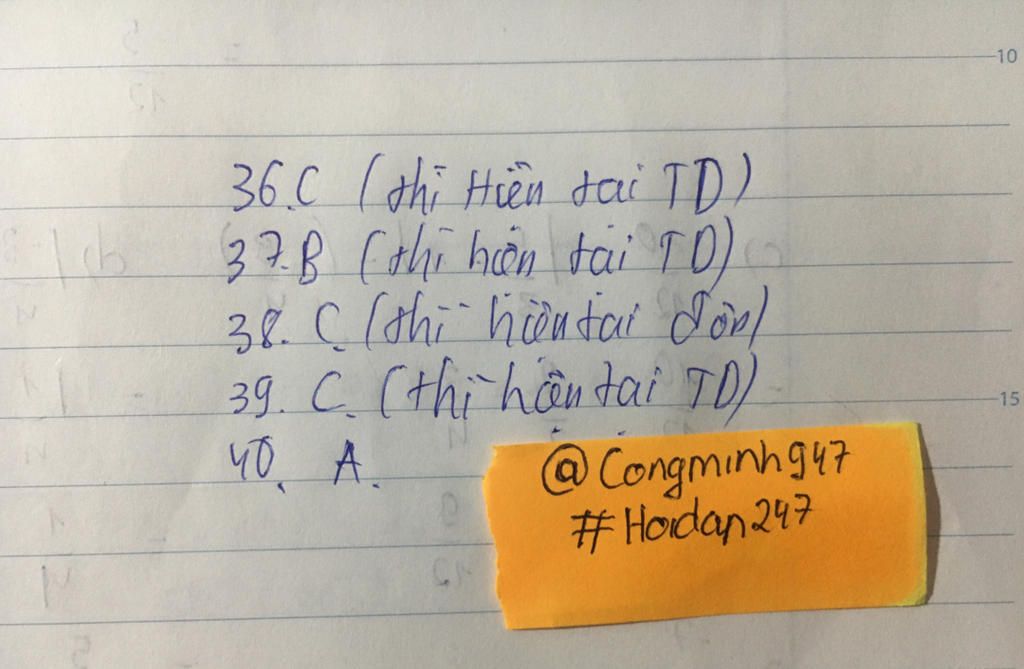 10
36. C (thì Hiện tại TD)
37. B (thì hiện tại TD)
38. C. (thì hiện tại đơn)
39. C. (thì hiện tại TD)
15
40. A.
@Congminh947
#Hoidap247